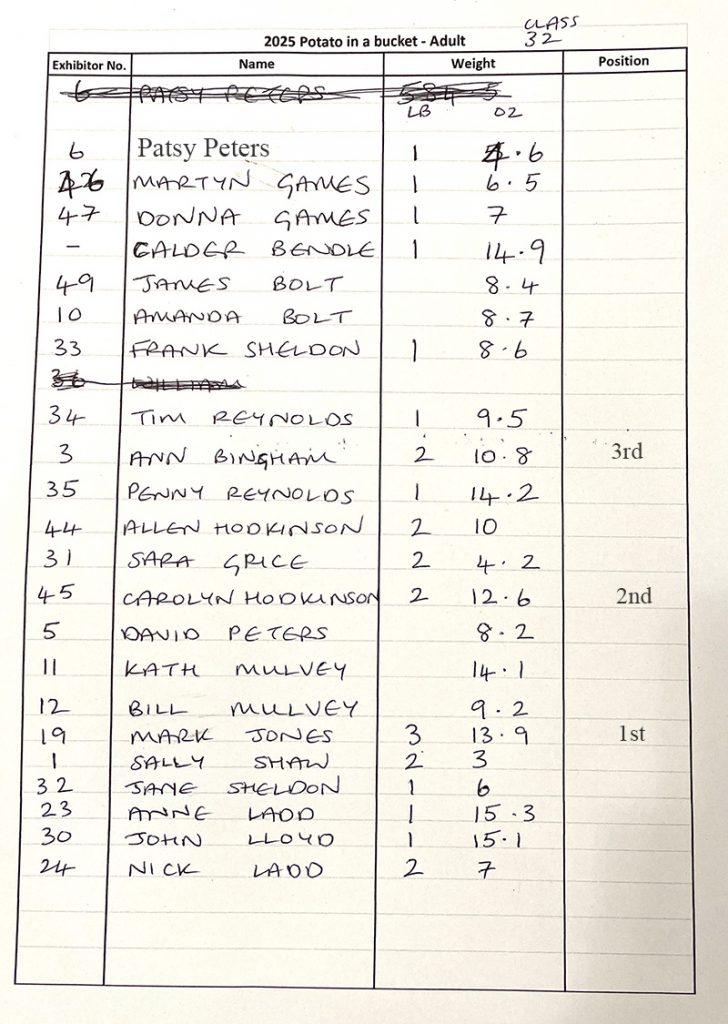 CLASS
2025 Potato in a bucket - Adult 32
Exhibitor No. Name Weight Position
6 PATSY PETERS 584 5
LB OZ
6 Patsy Peters 1 4.6
26 MARTYN GAMES 1 6.5
47 DONNA GAMES 1 7
- CALDER BENDLE 1 14.9
49 JAMES BOLT 8.4
10 AMANDA BOLT 8.7
33 FRANK SHELDON 1 8.6
36 WILLIAM
34 TIM REYNOLDS 1 9.5
3 ANN BINGHAM 2 10.8 3rd
35 PENNY REYNOLDS 1 14.2
44 ALLEN HODKINSON 2 10
31 SARA GRICE 2 4.2
45 CAROLYN HODKINSON 2 12.6 2nd
5 DAVID PETERS 8.2
11 KATH MULVEY 14.1
12 BILL MULVEY 9.2
19 MARK JONES 3 13.9 1st
1 SALLY SHAW 2 3
32 JANE SHELDON 1 6
23 ANNE LADD 1 15.3
30 JOHN LLOYD 1 15.1
24 NICK LADD 2 7